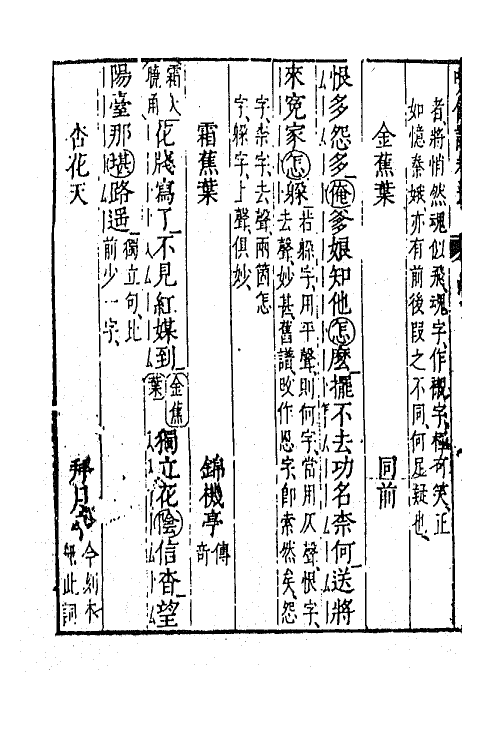 者、將悄然魂似飛、魂字作襯字、極可笑、正
如憶秦娥亦有前後叚之不同、何足疑也、
金蕉葉　同前
恨多怨多俺爹娘知他怎麼擺不去功名奈何送將
來寃家怎躱若躱字、用平聲、則何字、當用仄聲、恨字、
去聲、妙甚、舊讃改作恩字、卽索然矣、怨
字、柰字、去聲、兩箇怎
字、躱字、上聲、俱妙、
霜蕉葉　錦機亭傳奇
霜天曉角花牋寫了不見紅媒到金蕉葉獨立花陰信杳望
陽臺那甚路遥獨立句、比
前少一字、
杏花天　拜月亭今刻本
無此詞